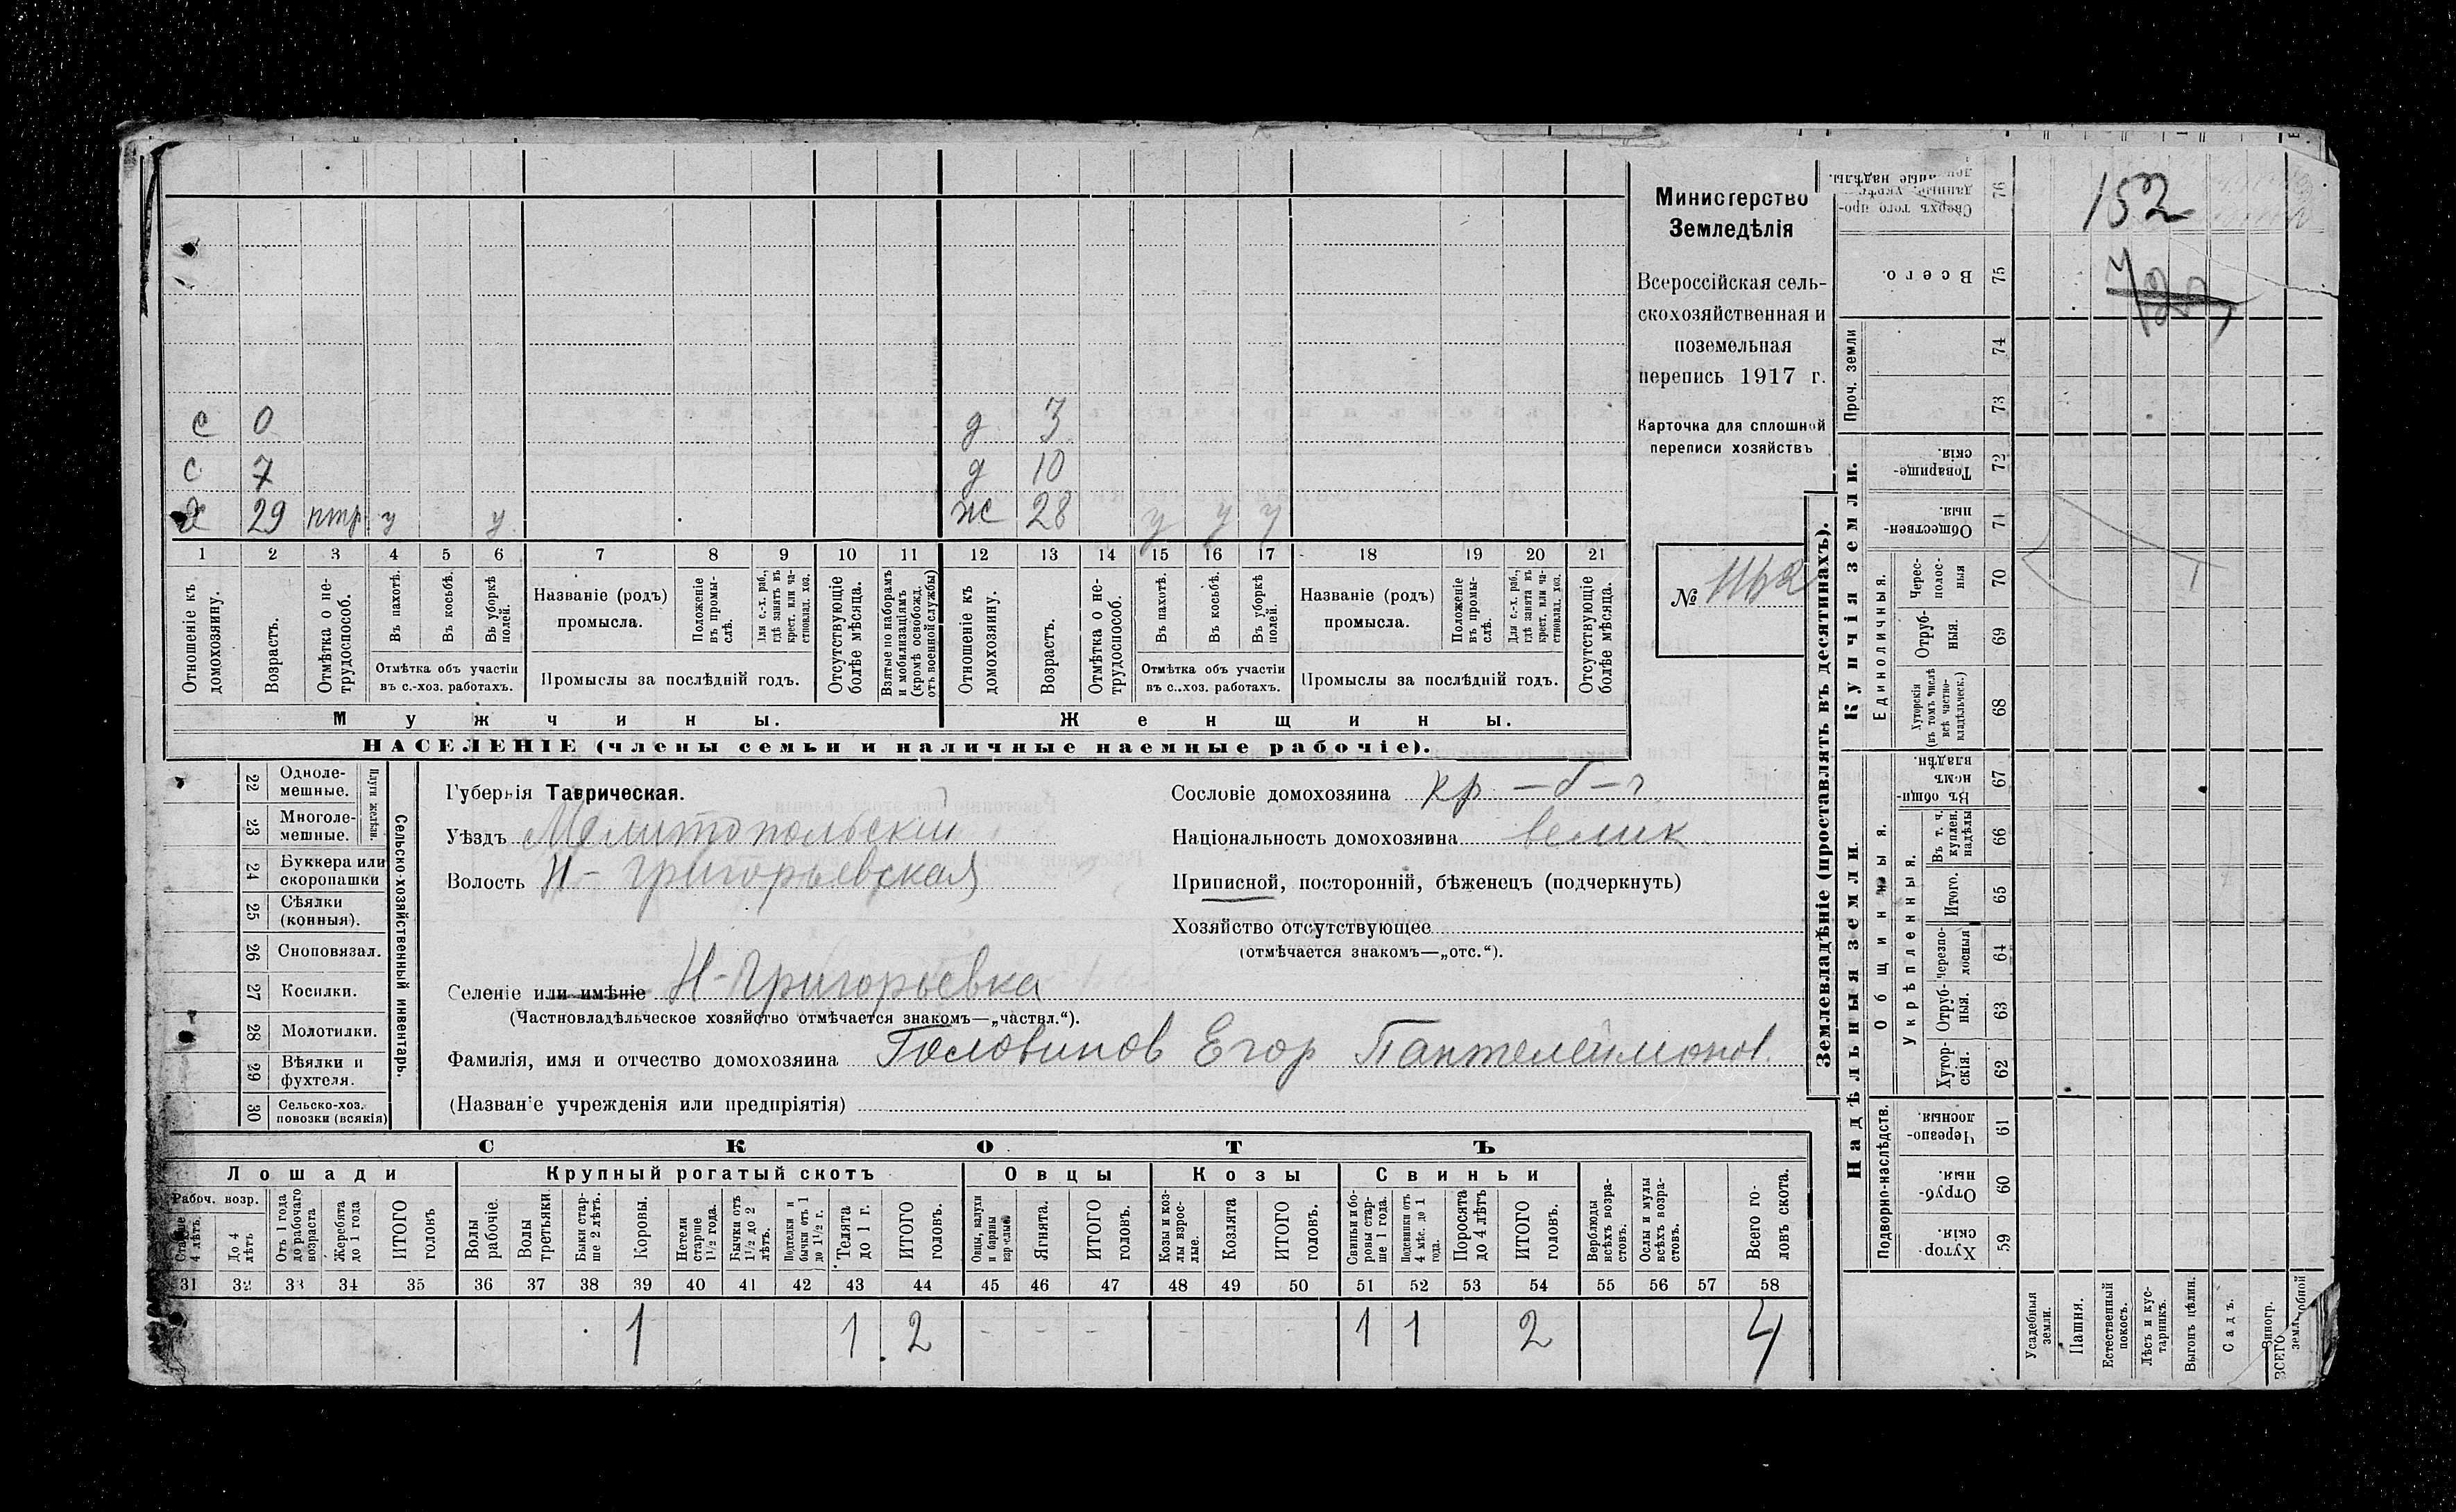 с 0 д 3
с 7 д 10
х 29 нтр у у ж 28 у у у
1 2 3 4 5 6 7 8 9 10 11 12 13 14 15 16 17 18 19 20 21
Отношеніе къ домохозяину.
Возрастъ.
Отмѣтка о не-трудоспособ.
Въ пахотѣ.
Въ косьбѣ.
Въ уборкѣ полей.
Отмѣтка объ участіи
въ с.-хоз. работахъ.
Названіе (родъ)
промысла.
Положеніе въ промы-слѣ.
Для с.-х. раб., гдѣ занятъ въ крест. или ча-стновлад. хоз.
Промыслы за послѣдній годъ.
Отсутствующіе болѣе мѣсяца.
Взятые по наборамъ и мобилизаціямъ (кромѣ освобожд. отъ военной службы)
Отношеніе къ домохозяину.
Возрастъ.
Отмѣтка о не-трудоспособ.
Въ пахотѣ.
Въ косьбѣ.
Въ уборкѣ полей.
Отмѣтка объ участіи
въ с..хоз. работахъ.
Названіе (родъ)
промысла.
Положеніе въ промы-слѣ.
Для с.-х. раб., гдѣ занята въ крест. или ча-стновлад. хоз.
Промыслы за послѣдній годъ.
Отсутствующіе болѣе мѣсяца.
Мужчины. Женщины.
НАСЕЛЕНІЕ (члены семьи и наличные наемные рабочіе).
Министерство
Земледѣлія
Всероссійская сель-
скохозяйственная и
поземельная
перепись 1917 г.
Карточка для сплошной
переписи хозяйствъ
№
22 Одноле-мешные.
23 Многоле-мешные.
Плуги желѣзн.
24 Буккера или скоропашки
25 Сѣялки (конныя).
26 Сноповязал.
27 Косилки.
28 Молотилки.
29 Вѣялки и фухтеля.
30 Сельско-хоз. повозки (всякія)
Сельско-хозяйственный инвентарь.
Губернія Таврическая.
Уѣздъ Мелитопольскій
Волость Н-Григорьевская
Селеніе или имѣніе Н-Григорьевка
(Частновладѣльческое хозяйство отмѣчается знакомъ—„частвл.“).
Фамилія, имя и отчество домохозяина Головинов Егор Пантелеймонов.
(Названіе учрежденія или предпріятія)
Сословіе домохозяина кр
Національность домохозяина велик
Приписной, посторонній, бѣженецъ (подчеркнуть)
Хозяйство отсутствующее
(отмѣчается знакомъ—„отс.“).
СКОТЪ
Лошади Крупный рогатый скотъ Овцы Козы Свиньи
Рабоч. возр.
Старше 4 лѣтъ.
До 4 лѣтъ
Отъ 1 года до рабочаго возраста
Жеребята до 1 года
ИТОГО головъ
Волы рабочіе.
Волы третьяки.
Быки стар-ше 2 лѣтъ.
Коровы.
Нетели старше 1½ года.
Бычки отъ 1½ до 2 лѣтъ.
Подтелки и бычки отъ 1 до 1½ г.
Телята до 1 г.
ИТОГО головъ.
Овцы, валухи и бараны взрослые.
Ягнята.
ИТОГО головъ.
Козы и коз-лы взрос-лые.
Козлята
ИТОГО головъ.
Свиньи и бо-ровы стар-ше 1 года.
Подсвинки отъ 4 мѣс. до 1 года.
Поросята до 4 лѣтъ
ИТОГО головъ.
Верблюды всѣхъ возра-стовъ.
Ослы и мулы всѣхъ возра-стовъ.
Всего го-ловъ скота.
31 32 33 34 35 36 37 38 39 40 41 42 43 44 45 46 47 48 49 50 51 52 53 54 55 56 57 58
1 1 2 - - - - - 1 1 2 4
Землевладѣніе (проставлять въ десятинахъ).
Надѣльныя земли. Купчія земли. Проч. земли
Подворно-наслѣдств.
Общинныя.
Укрѣпленныя.
Единоличныя.
Хутор-скія. 59
Отруб-ныя. 60
Черезпо-лосныя. 61
Хутор-скія. 62
Отруб-ныя. 63
Черезпо-лосныя 64
Итого. 65
Въ т. ч. куплен. надѣлы 66
Въ общин-номъ владѣн. 67
Хуторскія (въ томъ числѣ всѣ частно-владѣльческ.) 68
Отруб-ныя. 69
Черес-полос-ныя 70
Обществен-ныя. 71
Товарище-скія. 72
73
74
Всего. 75
Сверхъ того про-данные укрѣ-плен-ные надѣлы. 76
Усадебныя земли.
Пашня.
Естественный покосъ.
Лѣсъ и кус-тарникъ.
Выгонъ цѣлин.
Садъ.
Виногр.
ВСЕГО
152